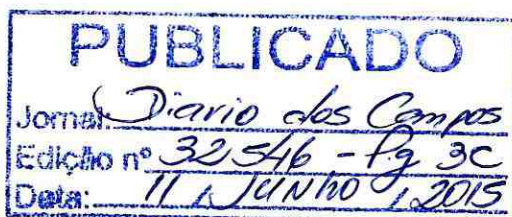 PUBLICADO
Jornal: Diario dos Campos
Edição nº 32546 - Pg 3C
Data: 11 / JUNHO / 2015